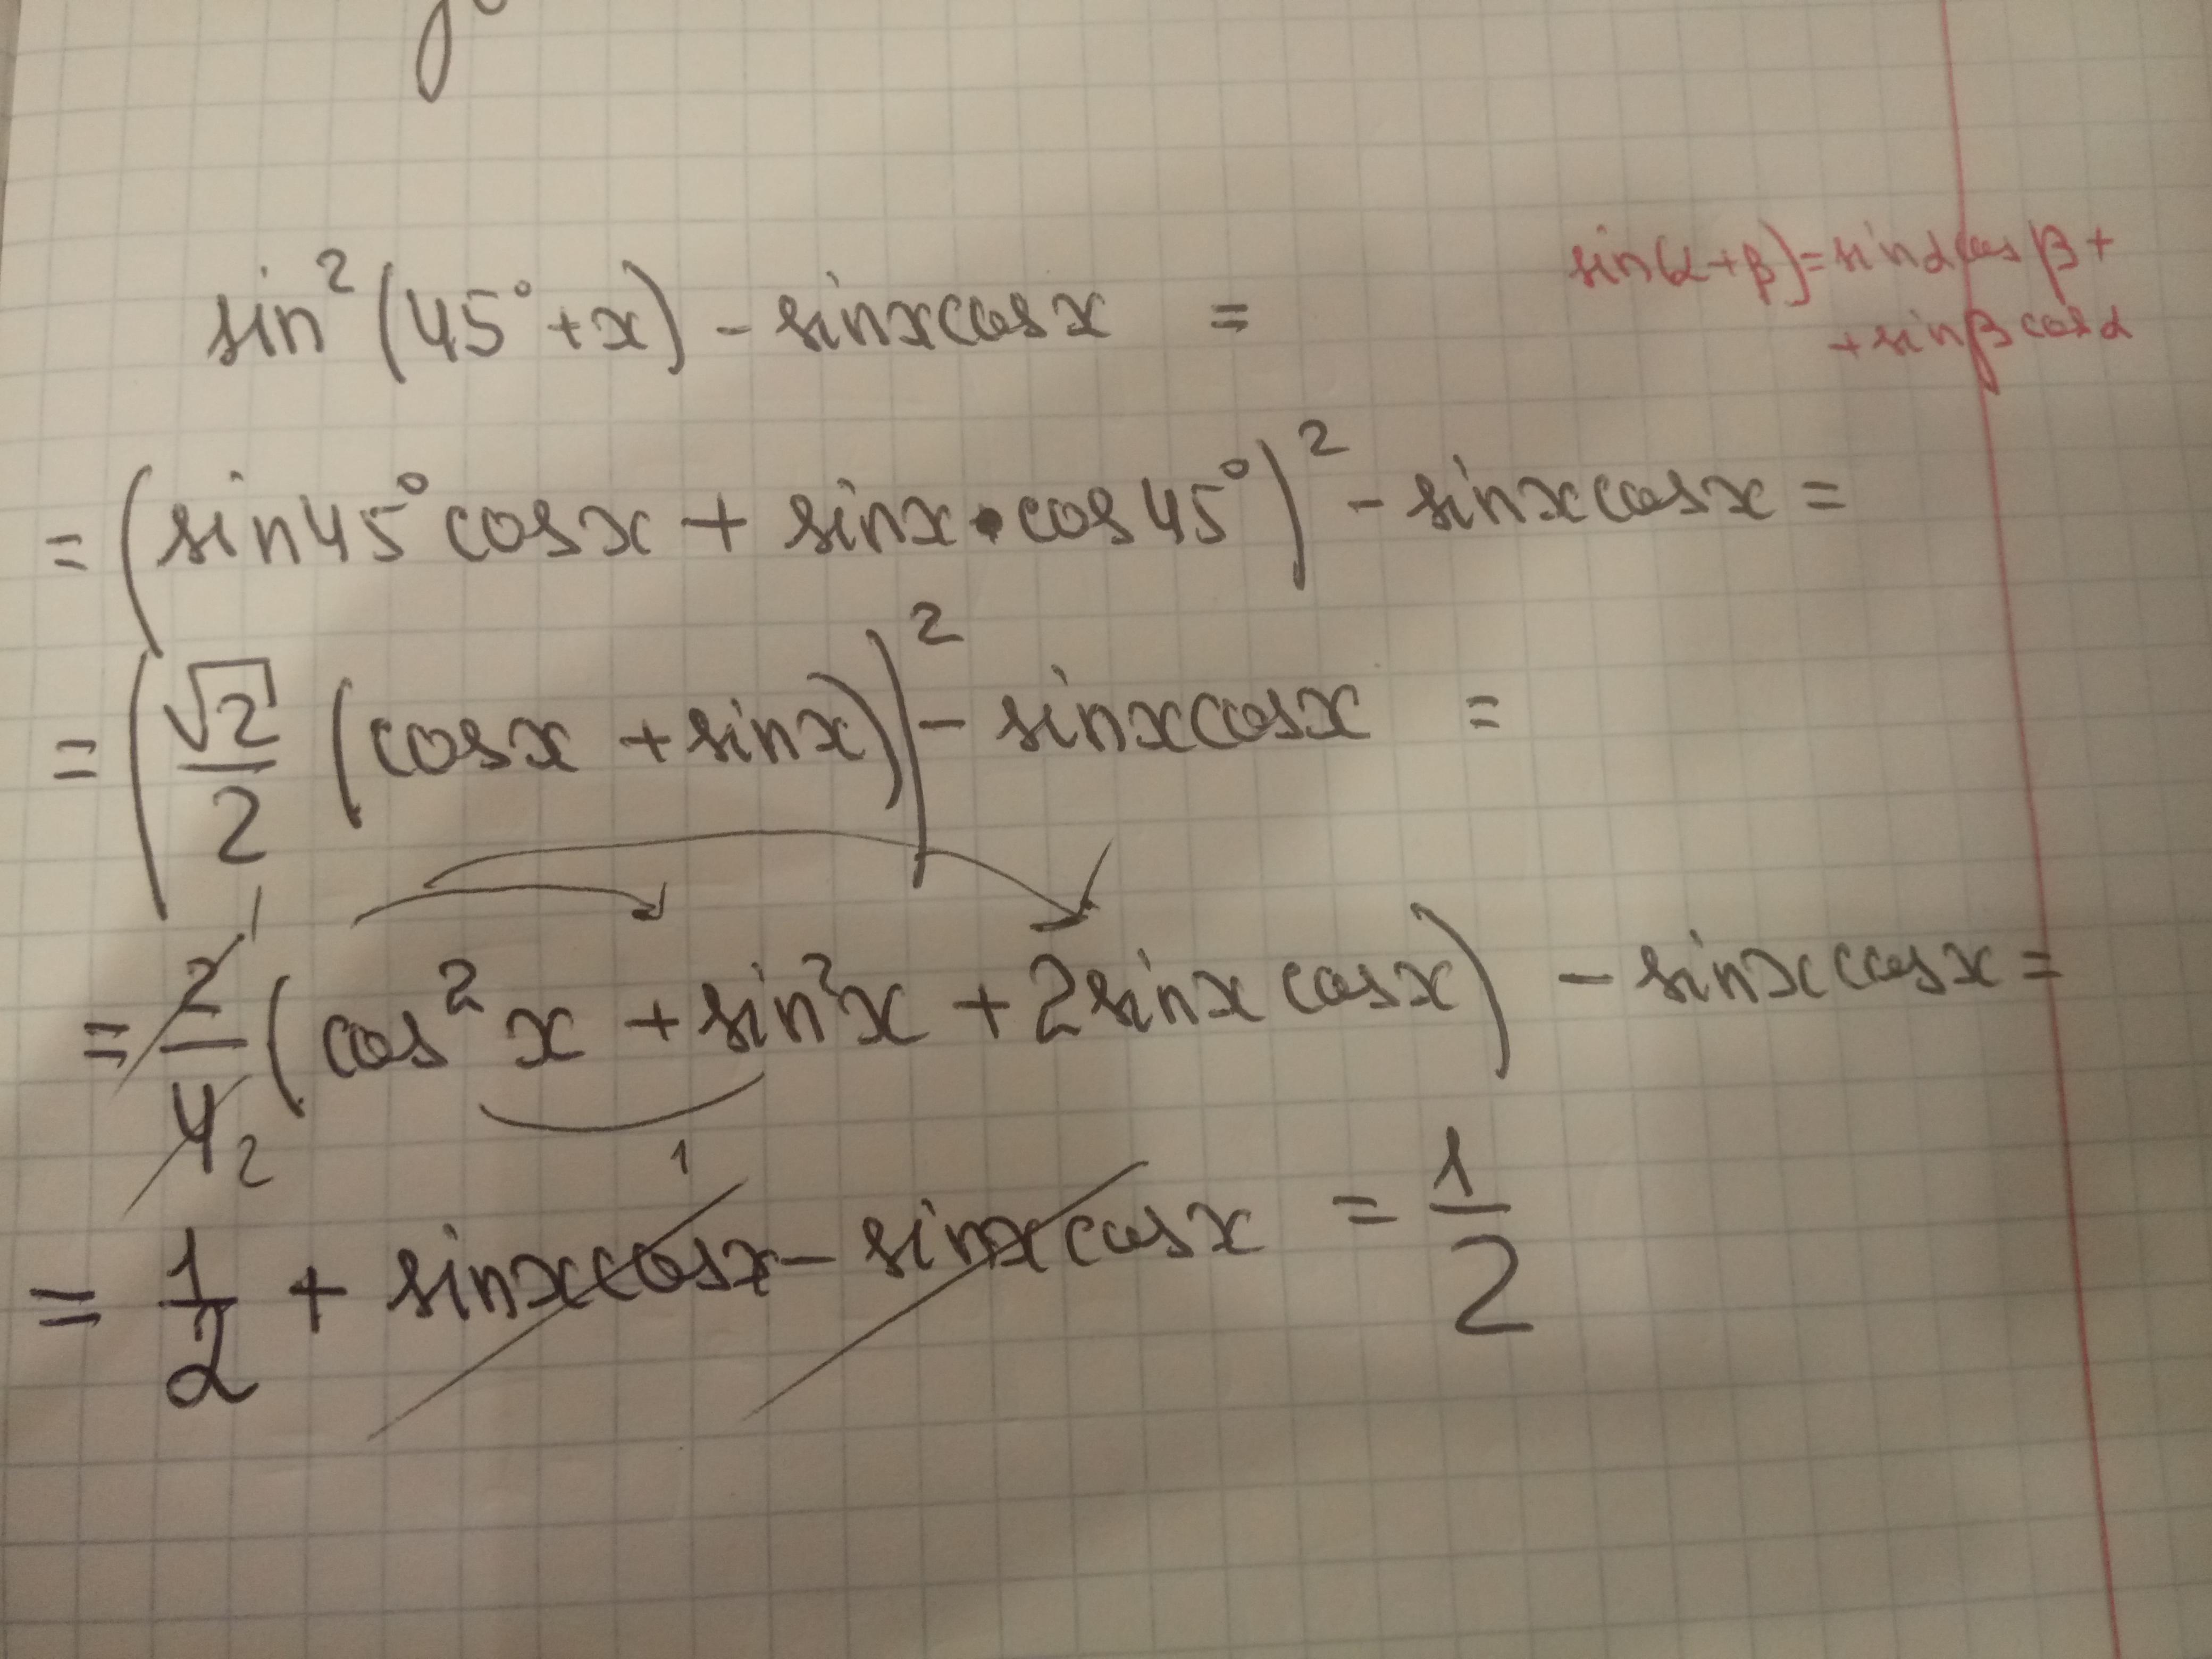 sin²(45°+x) - sinxcosx =
sin(α+β)=sinαcosβ+
+sinβcosα
=(sin45°cosx + sinx•cos45°)² - sinxcosx =
=(√2/2 (cosx +sinx))² - sinxcosx =
=2/4 1/2 (cos²x +sin²x +2sinxcosx) - sinxcosx =
1
= 1/2 + sinxcosx - sinxcosx = 1/2